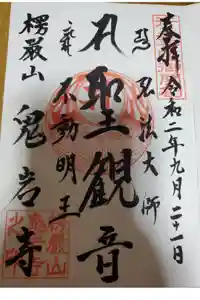 奉拝 令和二年九月二十一日
弘法大師
聖観音
不動明王
楞厳山 鬼岩寺